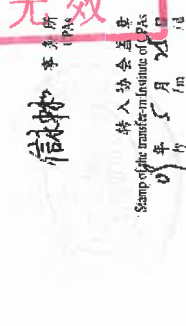 无效
事务所
CPAs
转入协会盖章
Stamp of the transfer-in Institute of CPAs
年 5 月 日
/y /m /d